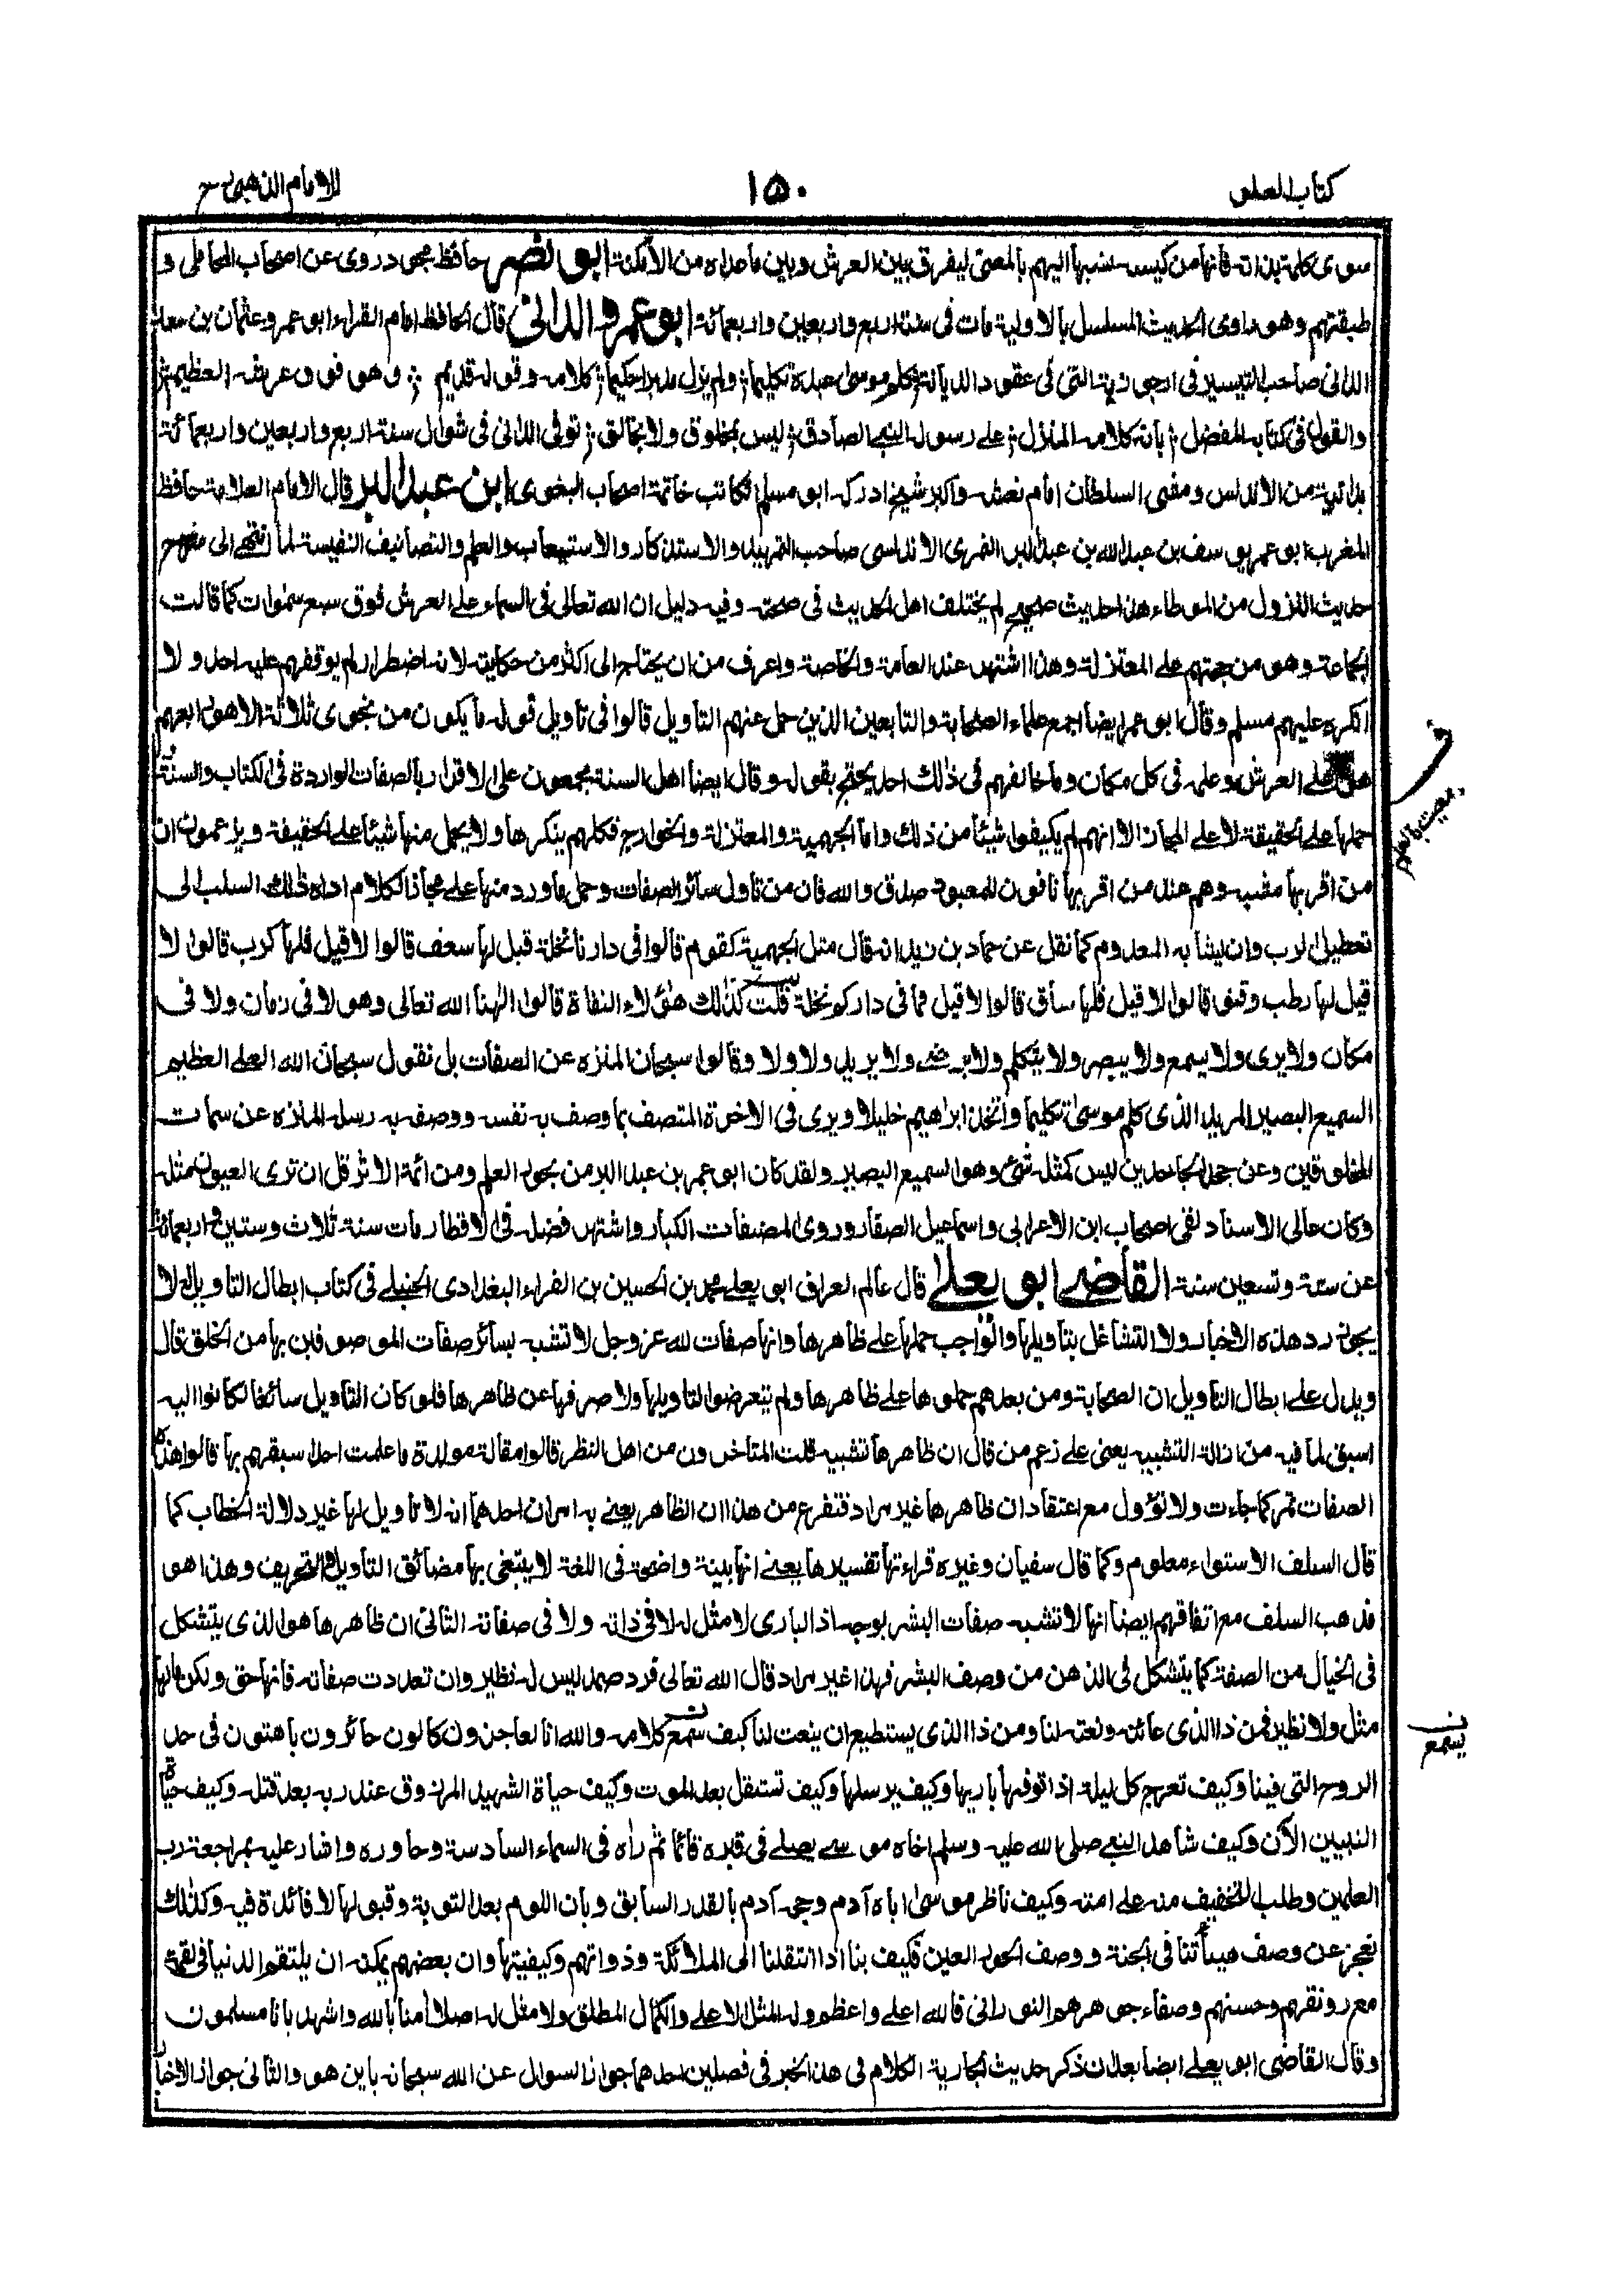 كتاب العلو
١٥٠
للامام الذهبي رح
سوى كلمة بذاته فانها من كيسه نسبها اليهم بالمعنى ليفرق بين العرش وبين ماعداه من الأمكنة ابو نصر حافظ مجود روى عن اصحاب المحاملى و
طبقتهم وهو راوى الحديث المسلسل بالاولية مات فى سنة اربع واربعين واربعمائة ابو عمرو الدانى قال الحافظ امام القراء ابو عمرو عثمان بن سعيد
الدانى صاحب التيسير فى ارجوزته التى فى عقود الديانة كلم موسى عبده تكليما ولم يزل مدبرا حكيما كلامه وقوله قديم وهو فوق عرشه العظيم
والقول فى كتابه المفضل بانه كلامه المنزل على رسوله النبى الصادق ليس بمخلوق ولا بخالق توفى الدانى فى شوال سنة اربع واربعين واربعمائة
بدانية من الاندلس ومشى السلطان امام نعشه واكبر شيخ ادركه ابو مسلم الكاتب خاتمة اصحاب البغوى ابن عبد البر قال الامام العلامة حافظ
المغرب ابو عمر يوسف بن عبد الله بن عبد البر النمرى الاندلسى صاحب التمهيد والاستذكار والاستيعاب والعلم والتصانيف النفيسة لما انتهى الى شرح
حديث النزول من الموطاء هذا حديث صحيح لم يختلف اهل الحديث فى صحته وفيه دليل ان الله تعالى فى السماء على العرش فوق سبع سموات كما قالت
الجماعة وهو من حجتهم على المعتزلة وهذا اشتهر عند العامة والخاصة واعرف من ان يحتاج الى اكثر من حكايته لانه اضطرار لم يوقفهم عليه احد ولا
انكره عليهم مسلم وقال ابو عمر ايضا اجمع علماء الصحابة والتابعين الذين حمل عنهم التاويل قالوا فى تاويل قوله ما يكون من نجوى ثلاثة الا هو رابعهم
هو على العرش وعلمه فى كل مكان وما خالفهم فى ذلك احد يحتج بقوله وقال ايضا اهل السنة مجمعون على الاقرار بالصفات الواردة فى الكتاب والسنة و
حملها على الحقيقة لا على المجاز الا انهم لم يكيفوا شيئا من ذلك واما الجهمية والمعتزلة والخوارج فكلهم ينكرها ولا يحمل منها شيئا على الحقيقة ويزعمون ان
من اقر بها مشبه وهم عند من اقر بها نافون للمعبود صدق والله فان من تاول سائر الصفات وحمل ما ورد منها على مجاز الكلام اداه ذلك السلب الى
تعطيل الرب وان يشابه المعدوم كما نقل عن حماد بن زيد انه قال مثل الجهمية كقوم قالوا فى دارنا نخلة قيل لها سعف قالوا لا قيل فلها كرب قالوا لا
قيل لها رطب وقنو قالوا لا قيل فلها ساق قالوا لا قيل فما فى داركم نخلة قلت كذلك هؤلاء النفاة قالوا الهنا الله تعالى وهو لا فى زمان ولا فى
مكان ولا يرى ولا يسمع ولا يبصر ولا يتكلم ولا يرضى ولا يريد ولا ولا وقالوا سبحان المنزه عن الصفات بل نقول سبحان الله العلى العظيم
السميع البصير المريد الذى كلم موسى تكليما واتخذ ابراهيم خليلا ويرى فى الاخرة المتصف بما وصف به نفسه ووصفه به رسله المنزه عن سمات
المخلوقين وعن جحد الجاحدين ليس كمثله شئ وهو السميع البصير ولقد كان ابو عمر بن عبد البر من بحور العلم ومن ائمة الاثر قل ان ترى العيون مثله
وكان عالى الاسناد لقى اصحاب ابن الاعرابى واسماعيل الصفار وروى المصنفات الكبار واشتهر فضله فى الاقطار مات سنة ثلاث وستين واربعمائة
عن ستة وتسعين سنة القاضى ابو يعلى قال عالم العراق ابو يعلى محمد بن الحسين بن الفراء البغدادى الحنبلى فى كتاب ابطال التاويل له لا
يجوز رد هذه الاخبار ولا التشاغل بتاويلها والواجب حملها على ظاهرها وانها صفات لله عز وجل لا تشبه بسائر صفات الموصوفين بها من الخلق قال
ويدل على ابطال التاويل ان الصحابة ومن بعدهم حملوها على ظاهرها ولم يتعرضوا لتاويلها ولا صرفها عن ظاهرها فلو كان التاويل سائغا لكانوا اليه
اسبق لما فيه من ازالة التشبيه يعنى على زعم من قال ان ظاهرها تشبيه قلت المتاخرون من اهل النظر قالوا مقالة مولدة ما علمت احدا سبقهم بها قالوا هذه
الصفات تمر كما جاءت ولا نؤول مع اعتقاد ان ظاهرها غير مراد فتفرع من هذا ان الظاهر يعنى به امران احدهما انه لا تاويل لها غير دلالة الخطاب كما
قال السلف الاستواء معلوم وكما قال سفيان وغيره قراءتها تفسيرها يعنى انها بينة واضحة فى اللغة لا يبتغى بها مضائق التاويل والتحريف وهذا هو
مذهب السلف مع اتفاقهم ايضا انها لا تشبه صفات البشر بوجه اذ البارى لا مثل له لا فى ذاته ولا فى صفاته الثانى ان ظاهرها هو الذى يتشكل
فى الخيال من الصفة كما يتشكل فى الذهن من وصف البشر فهذا غير مراد قال الله تعالى فرد صمد ليس له نظير وان تعددت صفاته فانها حق ولكن ما لها
مثل ولا نظير فمن ذا الذى عاينه ونعته لنا ومن ذا الذى يستطيع ان ينعت لنا كيف سمع كلامه والله انا لعاجزون كالون حائرون باهتون فى حد
الروح التى فينا وكيف تعرج كل ليلة اذا توفها باريها وكيف يرسلها وكيف تستقل بعد الموت وكيف حياة الشهيد المرزوق عند ربه بعد قتله وكيف حياة
النبيين الآن وكيف شاهد النبى صلى الله عليه وسلم اخاه موسى يصلى فى قبره قائما ثم راه فى السماء السادسة وحاوره واشار عليه بمراجعة رب
العلمين وطلب التخفيف منه على امته وكيف ناظر موسى اباه آدم وحجه آدم بالقدر السابق وبان اللوم بعد التوبة وقبولها لا فائدة فيه وكذلك
نعجز عن وصف هيأتنا فى الجنة ووصف الحور العين فكيف بنا اذا انتقلنا الى الملائكة وذواتهم وكيفيتها وان بعضهم يمكنه ان يلتقم الدنيا فى لقمة
مع رونقهم وحسنهم وصفاء جوهرهم النورانى فالله اعلى واعظم وله المثل الاعلى والكمال المطلق ولا مثل له اصلا آمنا بالله واشهد بانا مسلمون
وقال القاضى ابو يعلى ايضا بعد ان ذكر حديث الجارية الكلام فى هذا الخبر فى فصلين احدهما جواز السوال عن الله سبحانه باين هو والثانى جواز الاخبار
يسمع